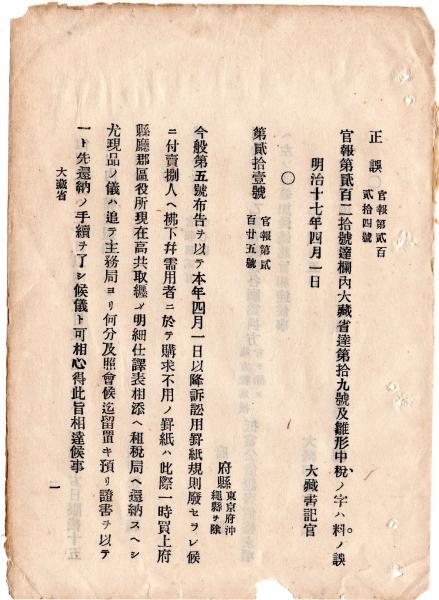 正誤 官報第貳百
貳拾四號
官報第貳百二拾號達欄內大藏省達第拾九號及雛形中稅ノ字ハ料ノ誤
明治十七年四月一日 大藏書記官
〇
第貳拾壹號 官報第貳
百廿五號
府縣 東京府沖
繩縣ヲ除
今般第五號布告ヲ以テ本年四月一日以降訴訟用罫紙規則廢セラレ候
ニ付賣捌人ヘ拂下幷需用者ニ於テ購求不用ノ罫紙ハ此際一時買上府
縣廳郡區役所現在高共取纒メ明細仕譯表相添ヘ租稅局ヘ還納スヘシ
尤現品ノ儀ハ追テ主務局ヨリ何分及照會候迄留置キ預リ證書ヲ以テ
一ト先還納ノ手續ヲ了シ候儀ト可相心得此旨相達候事
大藏省
一